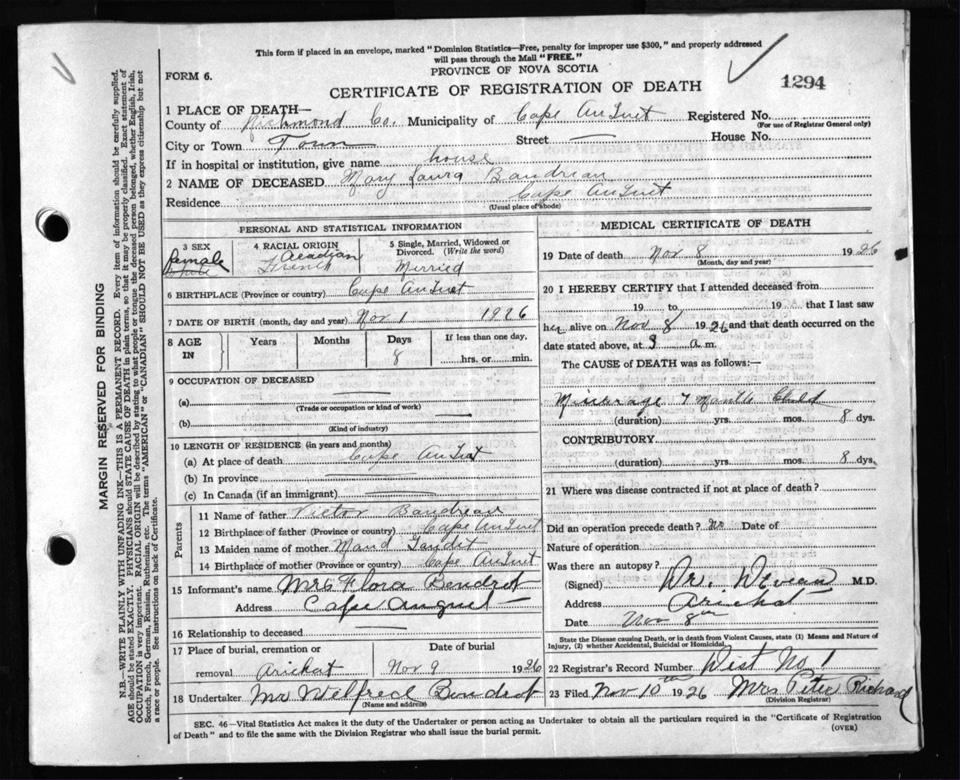 This form if placed in an envelope, marked "Dominion Statistics—Free, penalty for improper use $300," and properly addressed
will pass through the Mail "FREE."
FORM 6.
PROVINCE OF NOVA SCOTIA
CERTIFICATE OF REGISTRATION OF DEATH
1294
1 PLACE OF DEATH—
County of Richmond Co. Municipality of Cape AuGuet Registered No.
(For use of Registrar General only)
City or Town Town Street — House No.
If in hospital or institution, give name house
2 NAME OF DECEASED Mary Laura Baudrian
Residence Cape AuGuet
(Usual place of abode)
PERSONAL AND STATISTICAL INFORMATION
3 SEX female
4 RACIAL ORIGIN Acadian French
5 Single, Married, Widowed or Divorced. (Write the word) Merried
6 BIRTHPLACE (Province or country) Cape AuGuet
7 DATE OF BIRTH (month, day and year) Nov 1 1926
8 AGE IN Years Months Days 8 If less than one day, hrs. or min.
9 OCCUPATION OF DECEASED
(a) —
(Trade or occupation or kind of work)
(b) —
(Kind of industry)
10 LENGTH OF RESIDENCE (in years and months)
(a) At place of death Cape AuGuet
(b) In province —
(c) In Canada (if an immigrant) —
Parents
11 Name of father Victor Baudreau
12 Birthplace of father (Province or country) Cape AuGuet
13 Maiden name of mother Maud
14 Birthplace of mother (Province or country) Cape AuGuet
15 Informant's name Mrs Flora Bendrot
Address Cape Auguet
16 Relationship to deceased —
17 Place of burial, cremation or removal Arichat
Date of burial Nov 9 1926
18 Undertaker Mr Wilfred Bondrot
(Name and address)
MEDICAL CERTIFICATE OF DEATH
19 Date of death Nov 8 1926
(Month, day and year)
20 I HEREBY CERTIFY that I attended deceased from
19 to 19 that I last saw
her alive on Nov 8 1926 and that death occurred on
date stated above, at 9 a.m.
The CAUSE of DEATH was as follows:—
7 Month Child
(duration) yrs. mos. 8 dys.
CONTRIBUTORY
(duration) yrs. mos. 8 dys.
21 Where was disease contracted if not at place of death?
Did an operation precede death? no Date of
Nature of operation
Was there an autopsy?
(Signed) Dr. Deveau M.D.
Address Arichat
Date Nov 8th
State the Disease causing Death, or in death from Violent Causes, state (1) Means and Nature of
Injury, (2) whether Accidental, Suicidal or Homicidal.
22 Registrar's Record Number Dist No 1
23 Filed Nov 10th 1926 Mrs Peter Richard
(Division Registrar)
SEC. 46—Vital Statistics Act makes it the duty of the Undertaker or person acting as Undertaker to obtain all the particulars required in the "Certificate of Registration
of Death" and to file the same with the Division Registrar who shall issue the burial permit.
(OVER)
MARGIN RESERVED FOR BINDING
N.B.—WRITE PLAINLY WITH UNFADING INK—THIS IS A PERMANENT RECORD. Every item of information should be carefully supplied.
AGE should be stated EXACTLY. PHYSICIANS should STATE CAUSE OF DEATH in plain terms, so that it may be properly classified. Exact statement of
OCCUPATION is very important. RACIAL ORIGIN will be described by stating to what people or tongue the deceased person belonged, whether English, Irish,
Scotch, French, German, Russian, Ruthenian, etc. The terms "AMERICAN" or "CANADIAN" SHOULD NOT BE USED as they express citizenship but not
a race or people. See instructions on back of Certificate.